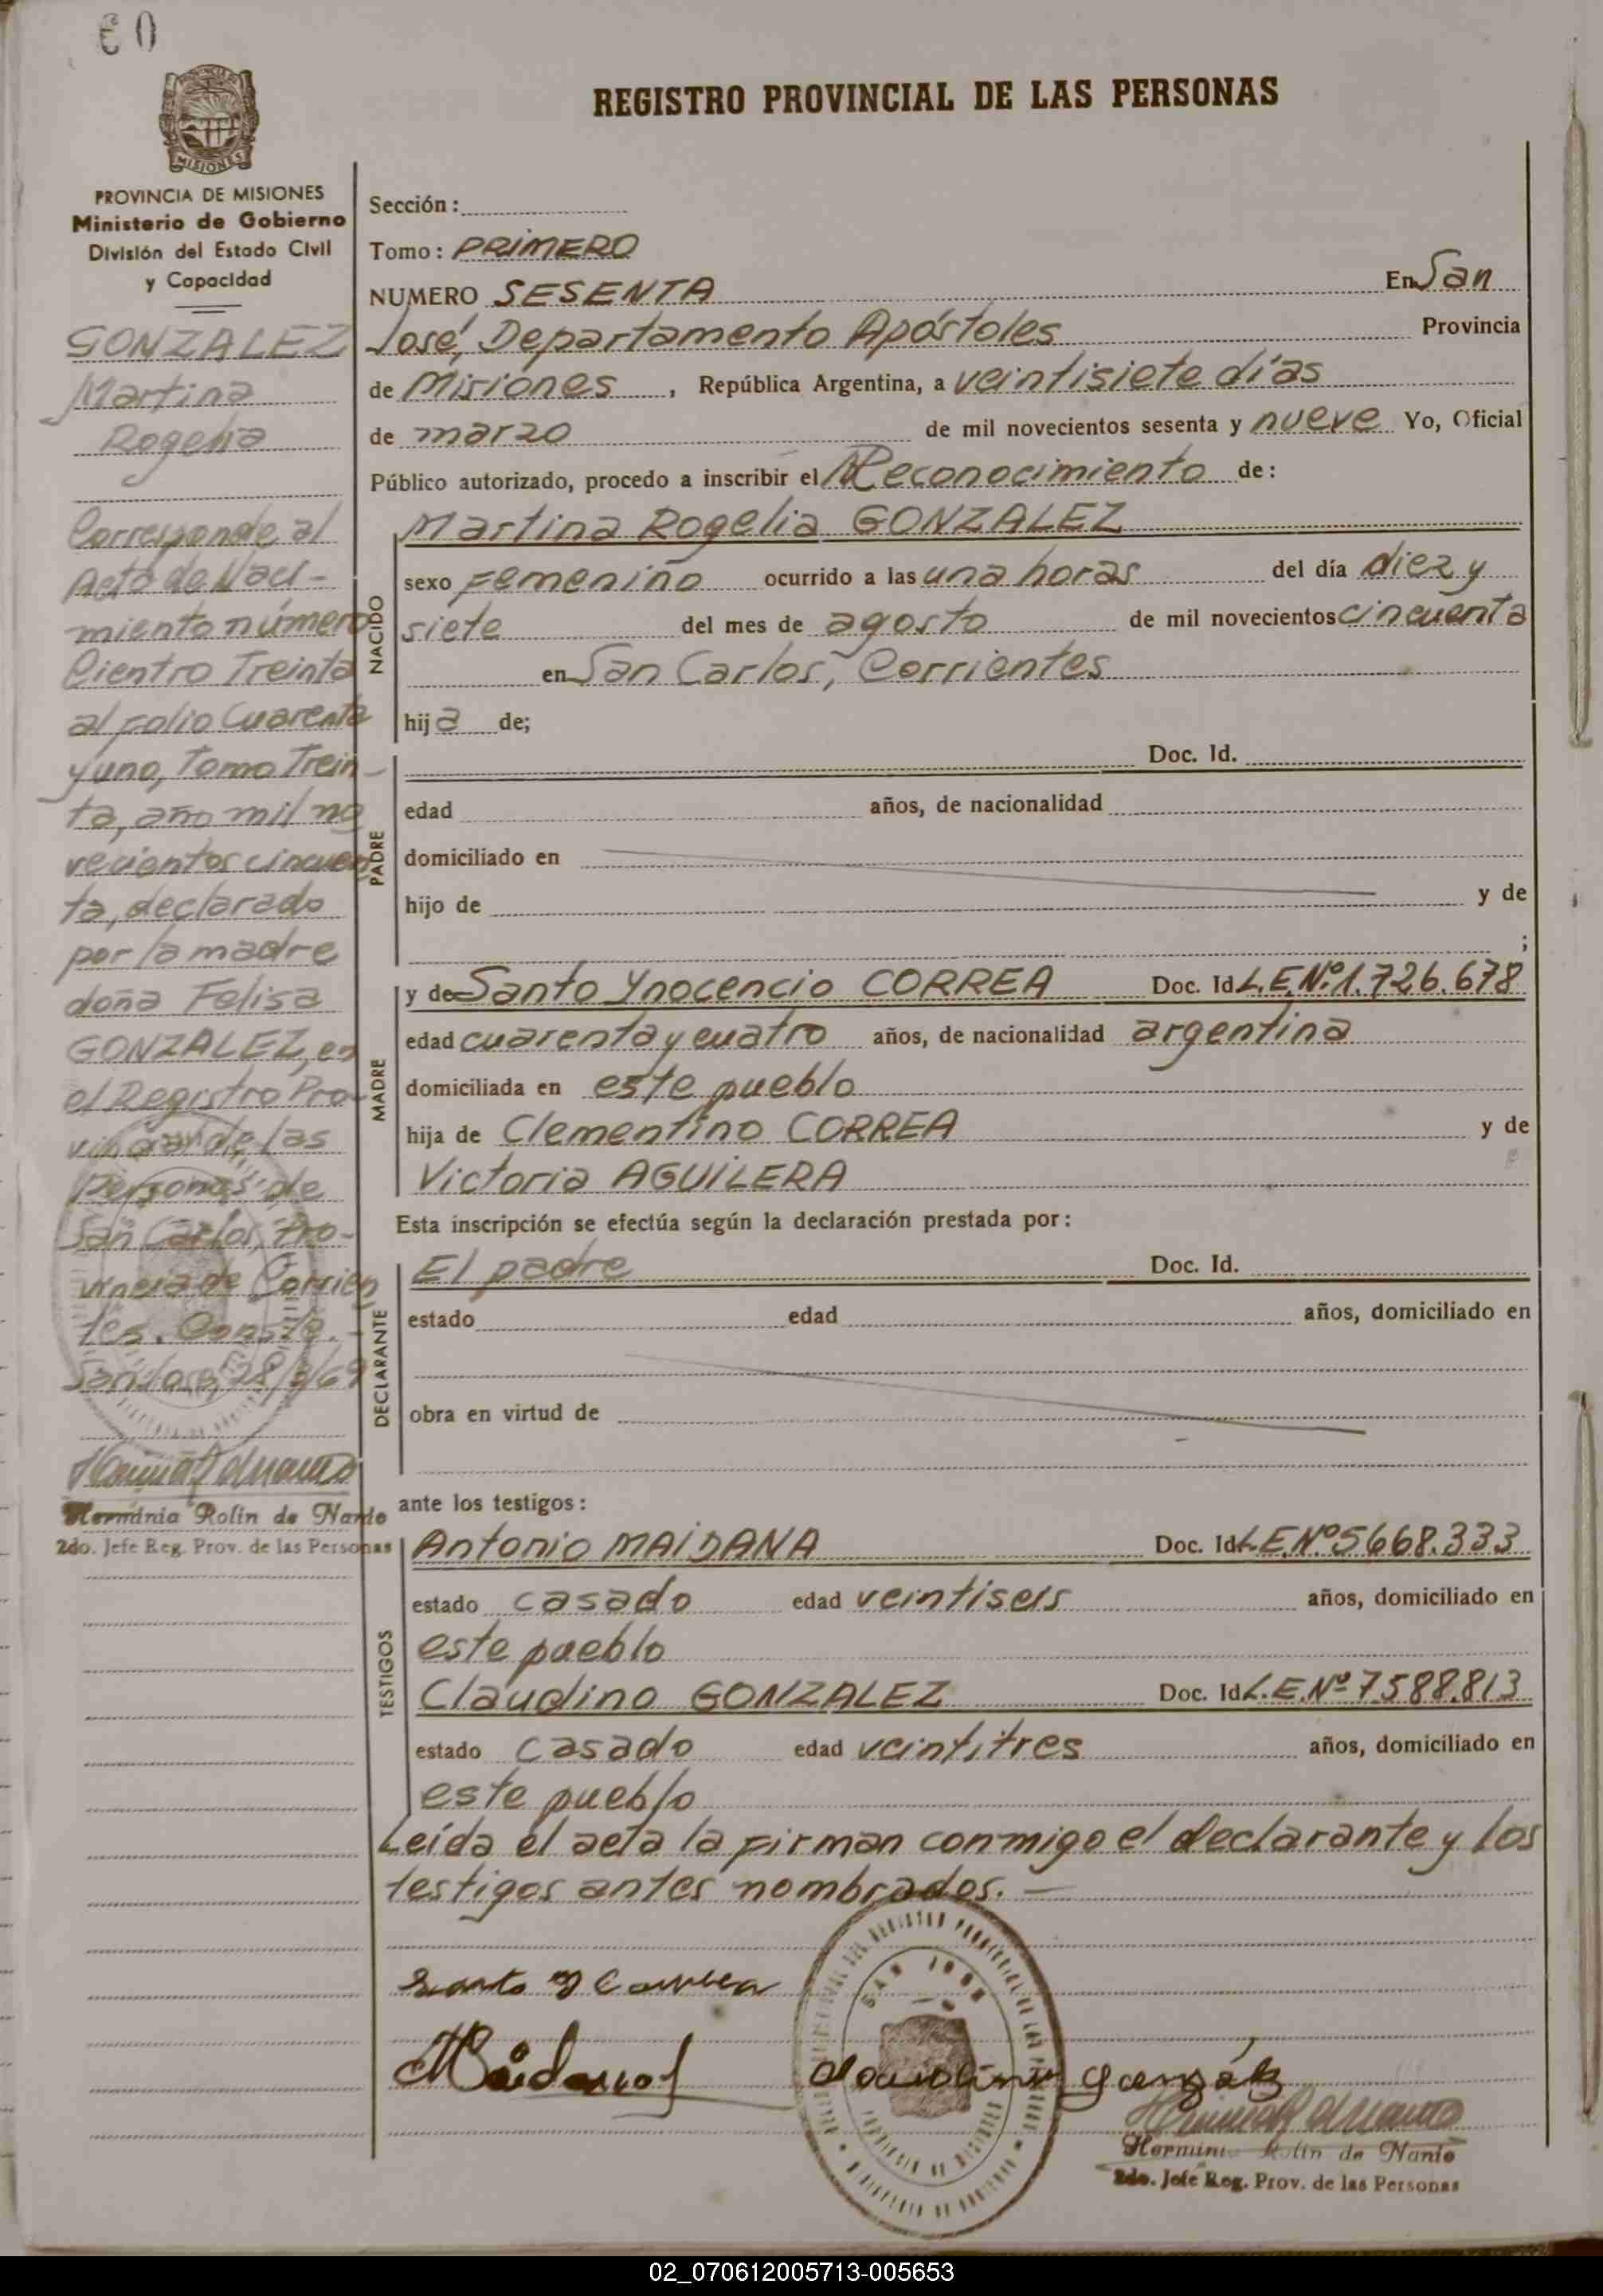 REGISTRO PROVINCIAL DE LAS PERSONAS
MISIONES
PROVINCIA DE MISIONES
Ministerio de Gobierno
División del Estado Civil
y Capacidad
GONZALEZ
Martina
Rogelia
Corresponde al
Acta de Naci-
miento número
Cientro Treinta
al folio Cuarenta
y uno, Tomo Trein-
ta, año mil no
vecientos cincuen
ta, declarado
por la madre
doña Felisa
GONZALEZ, en
el Registro Pro-
vincial de las
Personas de
San Carlos, Pro-
vincia de Corrien
tes. Conste.-
San José, 28/3/69
Herminia Rolin de Nanto
2do. Jefe Reg. Prov. de las Personas
Sección:
Tomo: PRIMERO
NUMERO SESENTA En San
José, Departamento Apóstoles Provincia
de Misiones, República Argentina, a veintisiete días
de marzo de mil novecientos sesenta y nueve Yo, Oficial
Público autorizado, procedo a inscribir el Reconocimiento de:
Martina Rogelia GONZALEZ
NACIDO
sexo Femenino ocurrido a las una horas del día diez y
siete del mes de agosto de mil novecientos cincuenta
en San Carlos, Corrientes
hija de;
PADRE
Doc. Id.
edad años, de nacionalidad
domiciliado en
hijo de y de
;
MADRE
y de Santo Ynocencio CORREA Doc. Id L.E.Nº1.726.678
edad cuarenta y cuatro años, de nacionalidad argentina
domiciliada en este pueblo
hija de Clementino CORREA y de
Victoria AGUILERA
Esta inscripción se efectúa según la declaración prestada por:
DECLARANTE
El padre Doc. Id.
estado edad años, domiciliado en
obra en virtud de
ante los testigos:
TESTIGOS
Antonio MAIDANA Doc. Id L.E.Nº5668.333
estado casado edad veintiseis años, domiciliado en
este pueblo
Claudino GONZALEZ Doc. Id L.E.Nº7588.813
estado casado edad veintitres años, domiciliado en
este pueblo
Leída el acta la firman conmigo el declarante y los
testigos antes nombrados.-
Santo Y Correa
SAN JOSE
PROVINCIA DE MISIONES
Herminia Rolin de Nanto
2do. Jefe Reg. Prov. de las Personas
02_070612005713-005653